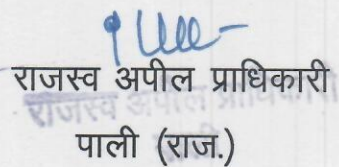 राजस्व अपील प्राधिकारी
राजस्व अपील प्राधिकारी
पाली (राज.)